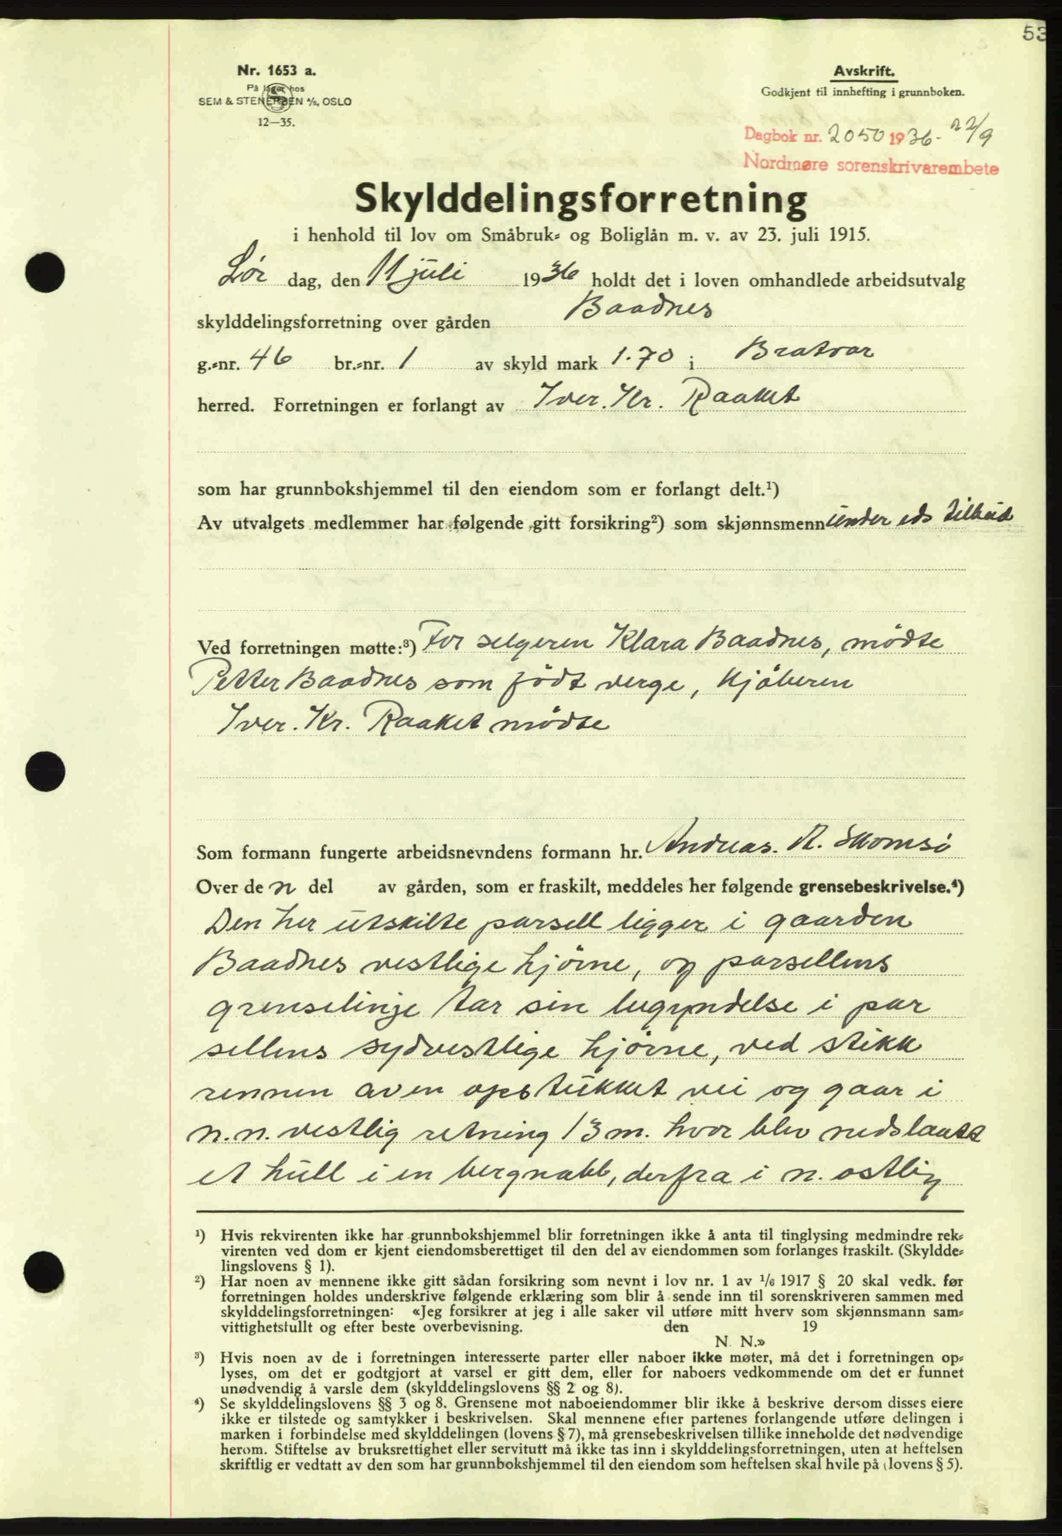 53
Nr. 1653 a.
På lager hos
SEM & STENERSEN A/S, OSLO
12—35.
Avskrift.
Godkjent til innhefting i grunnboken.
Dagbok nr. 2050 1936 - 22/9
Nordmøre sorenskriverembete
Skylddelingsforretning
i henhold til lov om Småbruk- og Boliglån m. v. av 23. juli 1915.
Lør dag, den 11 juli 1936 holdt det i loven omhandlede arbeidsutvalg
skylddelingsforretning over gården Baadnes
g.-nr. 46 br.-nr. 1 av skyld mark 1.70 i Bratvær
herred. Forretningen er forlangt av Iver. Kr. Raaket
som har grunnbokshjemmel til den eiendom som er forlangt delt.¹)
Av utvalgets medlemmer har følgende gitt forsikring²) som skjønnsmenn under eds tilbud
Ved forretningen møtte:³) For selgeren Klara Baadnes, mødte
Petter Baadnes som født verge, Kjøberen
Iver. Kr. Raaket mødte
Som formann fungerte arbeidsnevndens formann hr. Andreas. A. Skomsø
Over de n del av gården, som er fraskilt, meddeles her følgende grensebeskrivelse.⁴)
Den her utskilte parsell ligger i gaarden
Baadnes vestlige hjørne, og parsellens
grenselinje tar sin begyndelse i par
sellens sydvestlige hjørne, ved stikk
rennen av en opstukket vei og gaar i
n.n. vestlig retning 13 m. hvor blev nedslaatt
et hull i en bergnabb, derfra i n. ostlig
¹) Hvis rekvirenten ikke har grunnbokshjemmel blir forretningen ikke å anta til tinglysing medmindre rek-
virenten ved dom er kjent eiendomsberettiget til den del av eiendommen som forlanges fraskilt. (Skyldde-
lingslovens § 1).
²) Har noen av mennene ikke gitt sådan forsikring som nevnt i lov nr. 1 av 1/6 1917 § 20 skal vedk. før
forretningen holdes underskrive følgende erklæring som blir å sende inn til sorenskriveren sammen med
skylddelingsforretningen: «Jeg forsikrer at jeg i alle saker vil utføre mitt hverv som skjønnsmann sam-
vittighetsfullt og efter beste overbevisning. den 19
N. N.»
³) Hvis noen av de i forretningen interesserte parter eller naboer ikke møter, må det i forretningen op-
lyses, om det er godtgjort at varsel er gitt dem, eller for naboers vedkommende om det er funnet
unødvendig å varsle dem (skylddelingslovens §§ 2 og 8).
⁴) Se skylddelingslovens §§ 3 og 8. Grensene mot naboeiendommer blir ikke å beskrive dersom disses eiere
ikke er tilstede og samtykker i beskrivelsen. Skal mennene efter partenes forlangende utføre delingen i
marken i forbindelse med skylddelingen (lovens § 7), må grensebeskrivelsen tillike inneholde det nødvendige
herom. Stiftelse av bruksrettighet eller servitutt må ikke tas inn i skylddelingsforretningen, uten at heftelsen
skriftlig er vedtatt av den som har grunnbokshjemmel til den eiendom som heftelsen skal hvile på (lovens § 5).